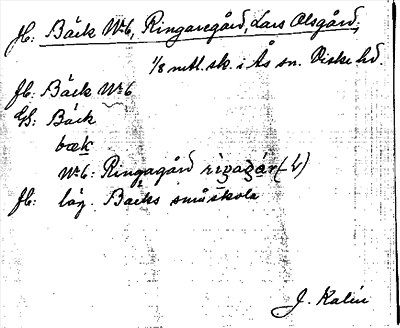 Jb: Bäck Nr 6, Ringaregård, Lars Olsgård,
1/8 mtl. sk. i Ås sn. Viske hd.
Jb: Bäck Nr 6
Us: Bäck
bæk
Nr 6: Ringagård
Jb: låg. Bäcks småskola
J. Kalén